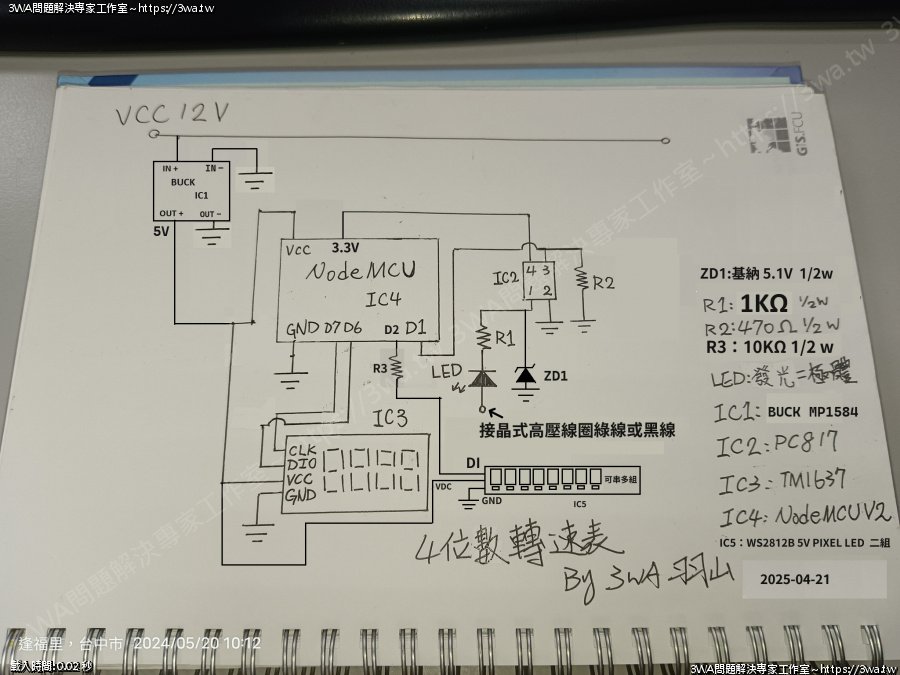 3WA問題解決專家工作室~https://3wa.tw
VCC 12V
GIS.FCU
IN+ IN-
BUCK
IC1
OUT+ OUT-
5V
VCC 3.3V
NodeMCU
IC4
GND D7 D6 D2 D1
IC2
4 3
1 2
R2
R1
R3
LED
ZD1
接晶式高壓線圈綠線或黑線
IC3
CLK
DIO
VCC
GND
DI
VDC
GND
可串多組
IC5
4位數轉速表
By 3WA 羽山
ZD1:基納 5.1V 1/2w
R1: 1KΩ 1/2W
R2:470Ω 1/2W
R3:10KΩ 1/2 w
LED:發光二極體
IC1: BUCK MP1584
IC2:PC817
IC3:TM1637
IC4:NodeMCU V2
IC5:WS2812B 5V PIXEL LED 二組
2025-04-21
3WA問題解決專家工作室~https://3wa.tw
逢福里,台中市 2024/05/20 10:12
載入時間:0.02 秒
3WA問題解決專家工作室~https://3wa.tw